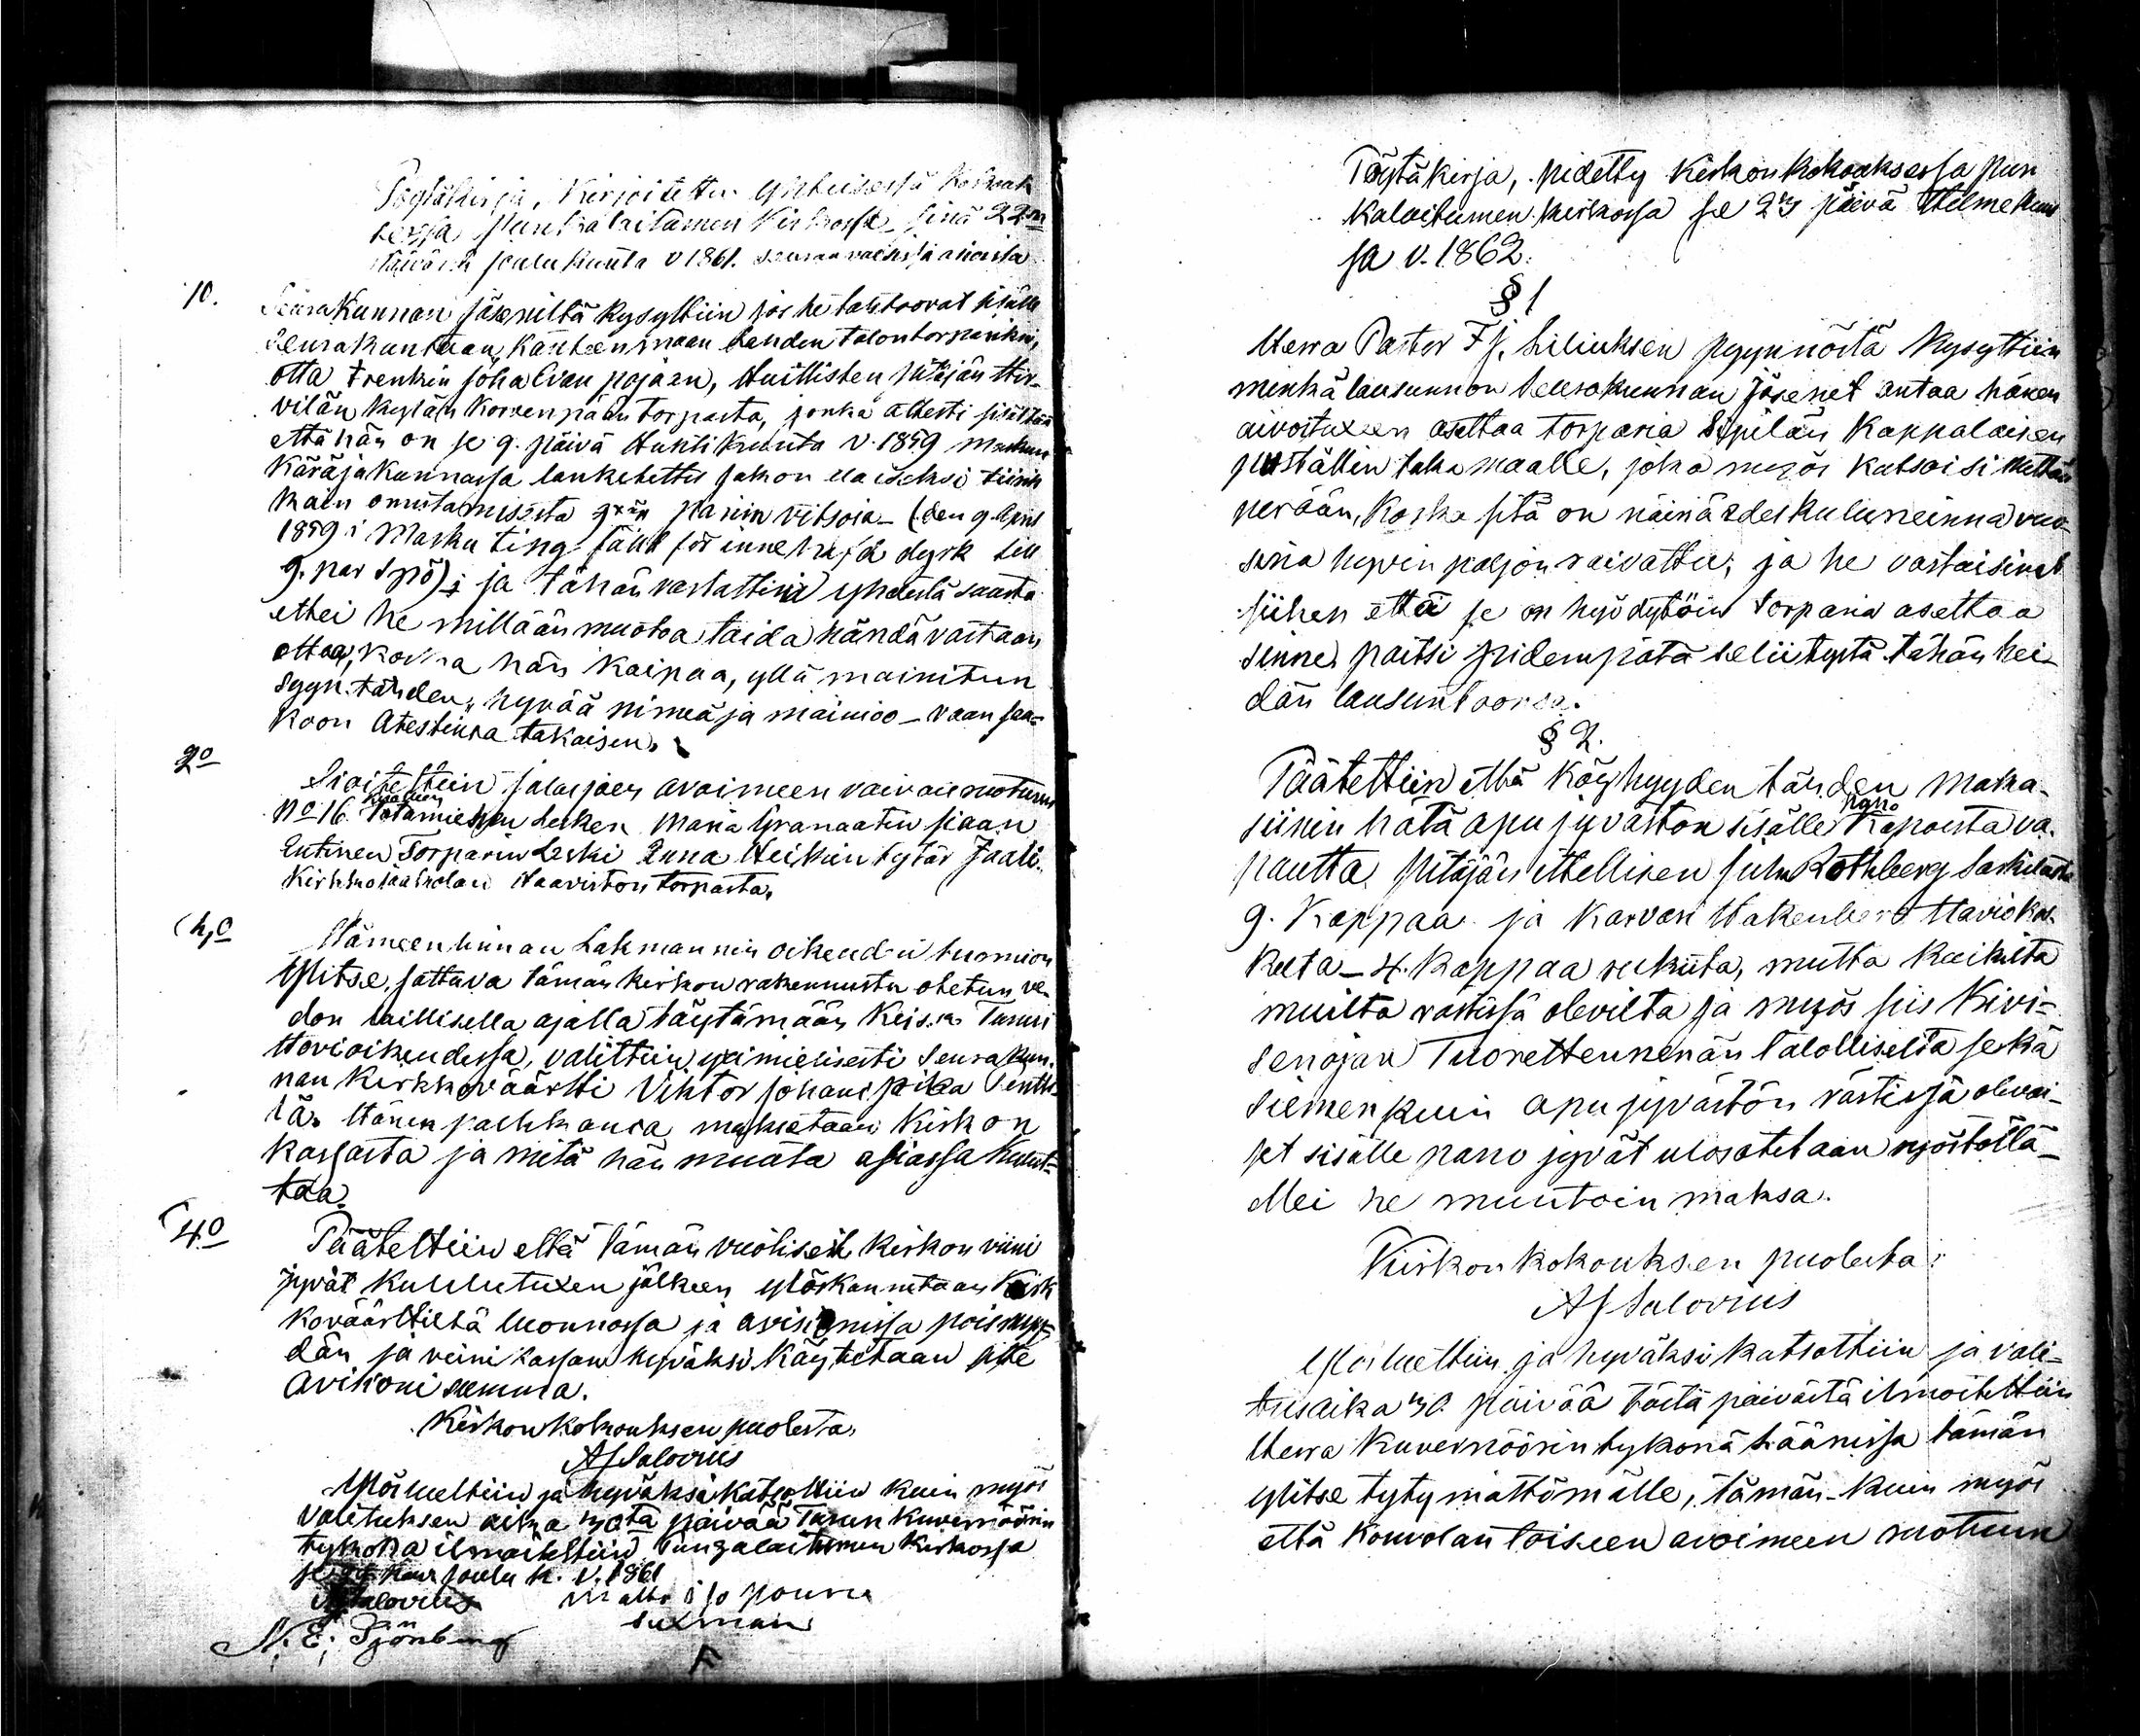 Pöytäkirja, Kirjoitettu Yhteisessä Kokouk
sessa Punkalaitumen Kirkossa sinä 22na
päivänä joulukuuta v 1861. seuraavaisissa asioissa
10. SeuraKunnan jäseniltä kysyttiin jos he tahtoovat sisälle
seurakuntaan, Kanteenmaan talontorppariksi,
otta Frenkin Joha Ivan pojaen, Huittisten Pitäjän Hir-
vilän kylän Korvenpään torpasta, jonka attesti sisältää
että hän on se 9. päivä Huhtikuuta v. 1859 Maskun
Käräjakunnassa lankehettu
omistamisesta parin vitsoja - (den 9. April
1859 i Masku ting fälld för innehafd dyrk till
9. par spö); ja tähän vastattiin yhdestä suusta
ettei he millään muotoa taida händä vastaan
ottaa, koska hän kaipaa, yllä mainitun
syyn tähden, hyvää nimeä ja mainioo - vaan saa-
koon Atestinsa takaisin.
2o Sioitettiin Jalasjoen avoimeen vaivais ruotuun
No 16. kuolleen Sotamiehen Lesken Maria Granaatin siaan
Entinen Torparin Leski Anna Heikin tytär Jaali.
Haaviston torpasta.
(3o Hämeenlinnan Lahmannin oikeuden tuomion
Ylitse, sattuva tämän kirkon rakennusta otetun ve-
don laillisella ajalla täytämään Keis.sa Turun
Hovioikeudessa, valittiin yximielisesti seurakun-
nan Kirkkoväärtti Viktor Johani Pentti-
lä. Hänen palkkansa maksetaan Kirkon
kassasta ja mitä hän muuta asiassa kulut-
taa.
(4o Päätettiin että tämän vuotiset kirkon viini
jyvät Kuulutuxen jälkeen ylöskannetaan Kirk
koväärtiltä luonnossa ja avisionissa pois myy-
dän ja viini kassan hyväksi käytetään sitte
Avikoni summa.
Kirkonkokouksen puolesta,
AJ Salovius
Ylösluettiin ja hyväksi katsottiin kuin myös
Valituksen aika 30tä päivää Turun Kuvernöörin
tykönä ilmoitettiin Pungalaitumen Kirkossa
se joulu k. v. 1861
AJ Salovius Matts
Suxman
N. E. Sjönberg
Pöytäkirja, pidetty Kirkonkokouksessa pun
kalaitumen kirkossa se 23 päivä Helmekuus
sa v. 1862.
§ 1
Herra Pastor F J. Liliuksen pyynnöstä kysyttiin
minkä lausunnon seurakunnan jäsenet antaa hänen
aivoituxeen asettaa torparia Sipilän Kappalaisen
puställin taka maalle, joka myös katsoisi mettän
perään, koska sitä on näinä edeskuluneinna vuo-
sina hyvin paljon raivattu; ja he vastaisivat
siihen että se on hyödytöin torparia asettaa
sinne, paitsi pidempätä selitystä tähän hei-
dän lausuntoonsa.
§ 2.
Päätettiin että Köyhyyden tähden maka-
siinin hätä apu jyvästön sisälle pano Kapoista va-
pautta Pitäjän ittellisen Juha Rothberg
9. Kappaa ja Karvari Wakenberg Haviokos-
kelta - 4. kappaa rukiita, mutta kaikilta
muilta rästissä olevilta ja myös siis Kivi-
senojan Tuorettennenän talolliselta sekä
siemen kuin apu jyvästön rästissä olevai-
set sisälle pano jyvät ulosotetaan ryöstöllä-
ellei he muutoin maksa.
Kirkonkokouksen puolesta:
AJ Salovius
Ylösluettiin ja hyväksi katsottiin ja vali-
tusaika 30 päivää tästä päivästä ilmoitettiin
Herra Kuvernöörin tykönä Läänissä tämän
ylitse tytymättömälle, tämän - kuin myös
että Kouvolan toiseen avoimeen ruotuun